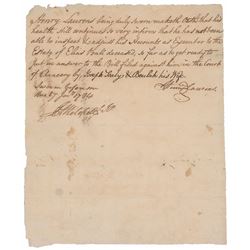 Henry Laurens being duly sworn maketh Oath that his
health still continues so very infirm that he has not been
able to inspect & adjust his Accounts as Executor to the
Estate of Elias Ball deceased, so far as to get ready to
put in an answer to the Bill filed against him in the Court
of Chancery by Joseph & his Wife
Sworn before me
this 17 1784
Henry Laurens